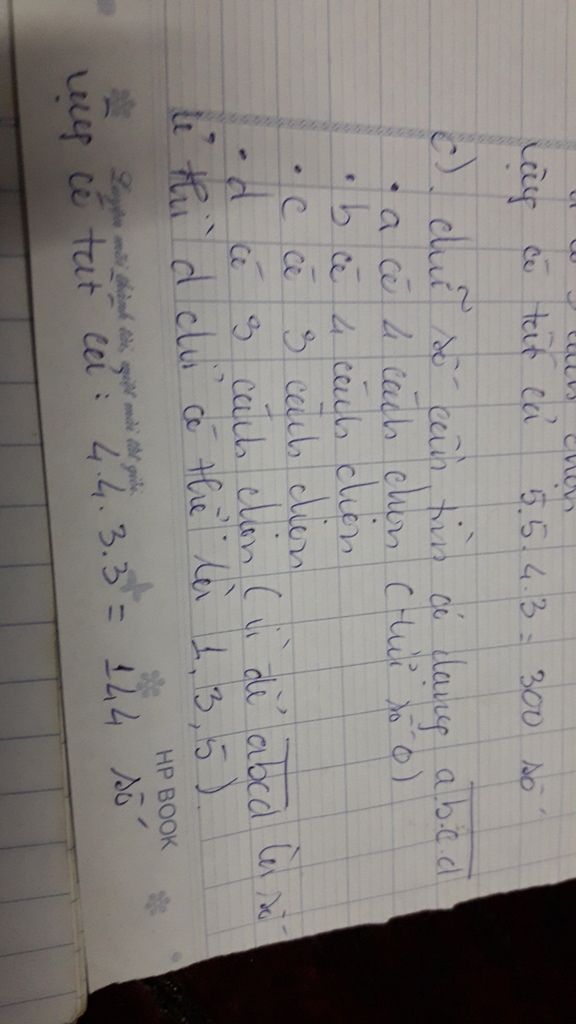 cách chọn
vậy có tất cả 5.5.4.3 = 300 số
c). chữ số cần tìm có dạng abcd
• a có 4 cách chọn (trừ số 0)
• b có 4 cách chọn
• c có 3 cách chọn
• d có 3 cách chọn (vì để abcd là số
lẻ thì d chỉ có thể là 1, 3, 5)
HP BOOK
Luyện mãi thành tài, miệt mài tất giỏi.
vậy có tất cả: 4.4.3.3 = 144 số